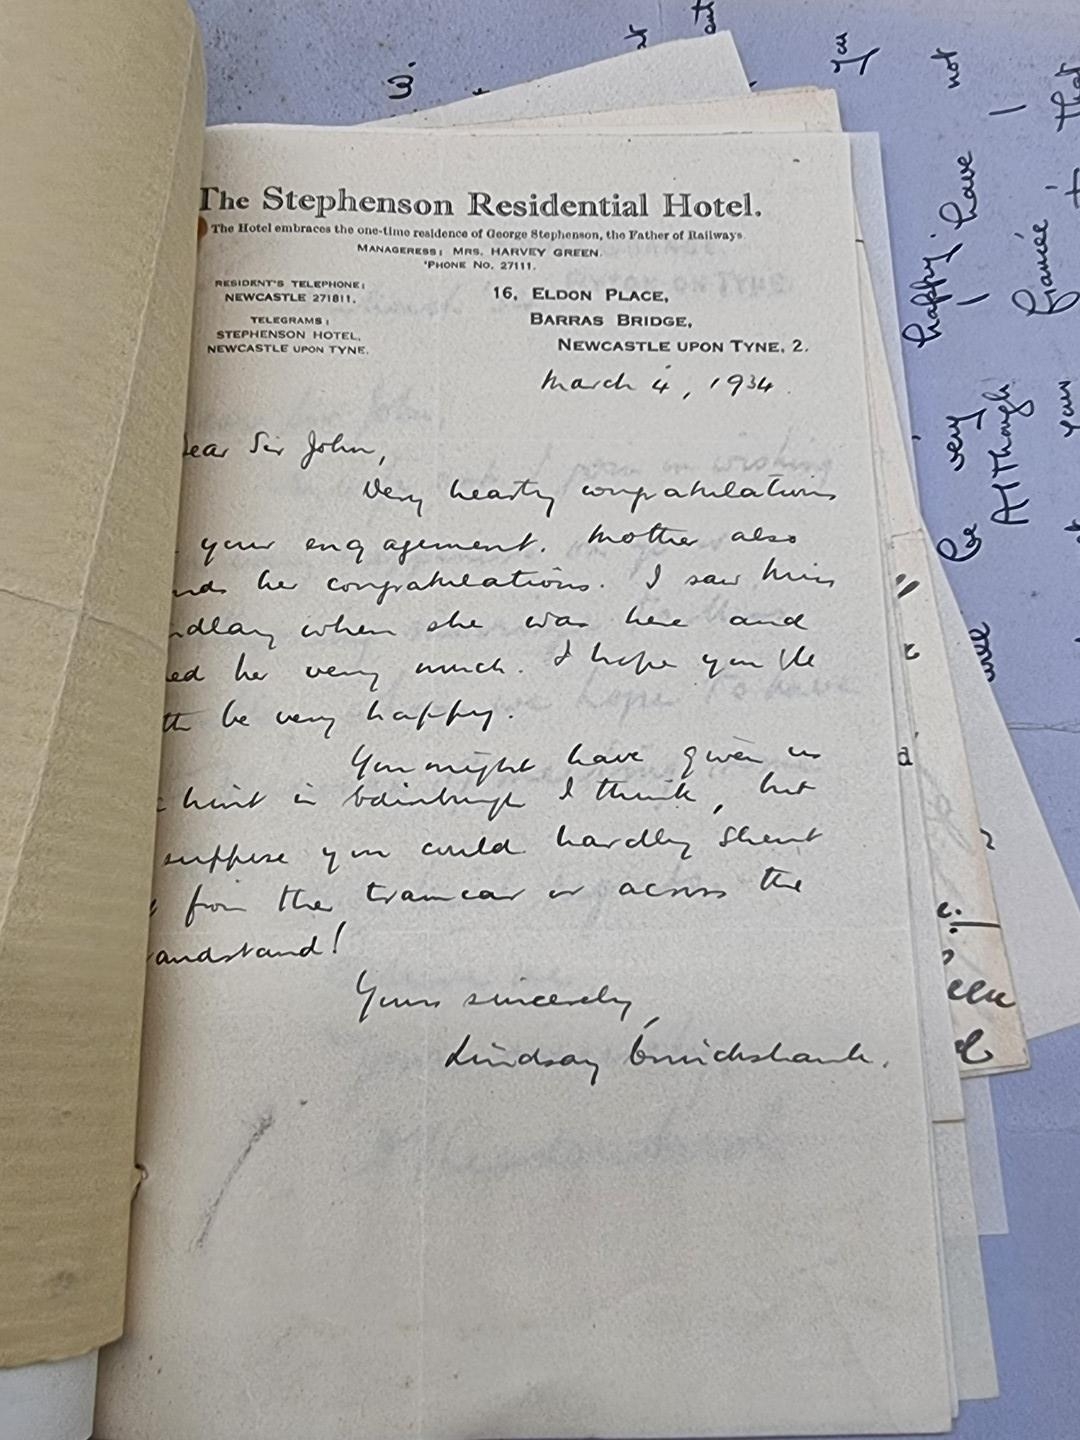 The Stephenson Residential Hotel.
The Hotel embraces the one-time residence of George Stephenson, the Father of Railways.
MANAGERESS: MRS. HARVEY GREEN.
'PHONE NO. 27111.
RESIDENT'S TELEPHONE:
NEWCASTLE 271811.
TELEGRAMS:
STEPHENSON HOTEL,
NEWCASTLE UPON TYNE.
16, ELDON PLACE,
BARRAS BRIDGE,
NEWCASTLE UPON TYNE, 2.
March 4, 1934.
ear Sir John,
Very hearty congratulations
your engagement. Mother also
nds her congratulations. I saw Miss
ndlay when she was here and
ed her very much. I hope you'll
th be very happy.
You might have given us
hint in Edinburgh I think, but
suppose you could hardly shout
from the tramcar or across the
andstand!
Yours sincerely,
Lindsay Cruickshank.
W.
You
not
happy
have
I
I
that
fiancée
very
Although
be
your
will